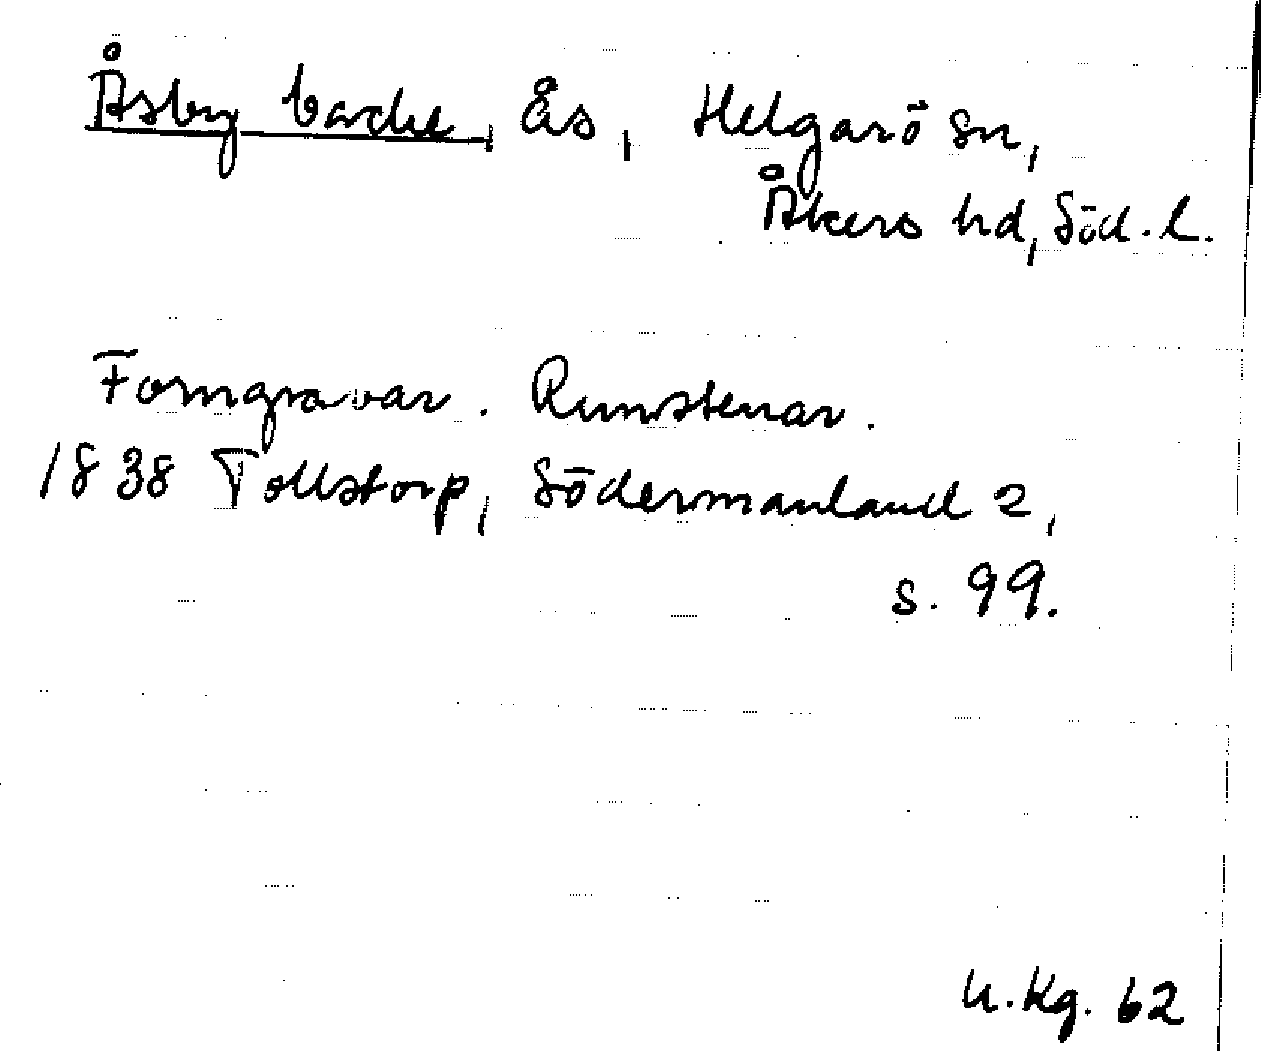 Åsby backe, ås, Helgarö sn,
Åkers hd, Söd. l.
Forngravar. Runstenar.
1838 Tollstorp, Södermanland 2,
s. 99.
U. Kg. 62